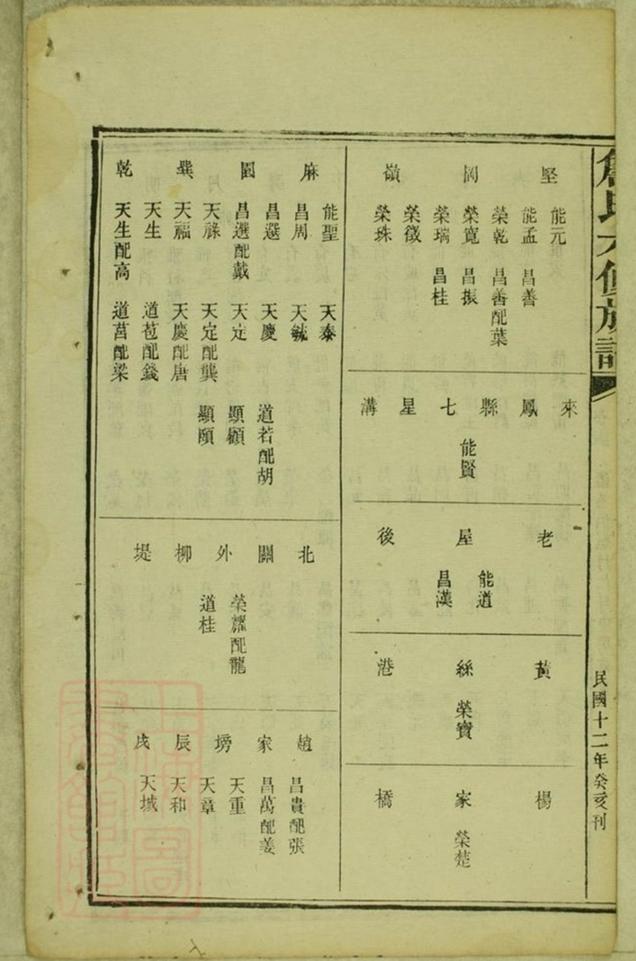 詹氏六修族譜
民國十二年癸亥刊
堅岡嶺
能元
能孟 昌善
榮乾 昌善配葉
榮寬 昌振
榮瑞 昌桂
榮徵
榮珠
來鳳縣七星溝
能賢
老屋後
能道
昌漢
黃絲港
榮寶
楊家橋
榮楚
麻園巽乾
能聖 天泰
昌周 天毓
昌選 天慶 道若配胡
昌選配戴 天定 顯顧
天祿 天定配龔 顯頤
天福 天慶配唐
天生 道苞配錢
天生配高 道莒配梁
北關外柳堤
榮耀配龍
道桂
趙家塝辰戌
昌貴配張
昌萬配姜
天重
天章
天和
天域